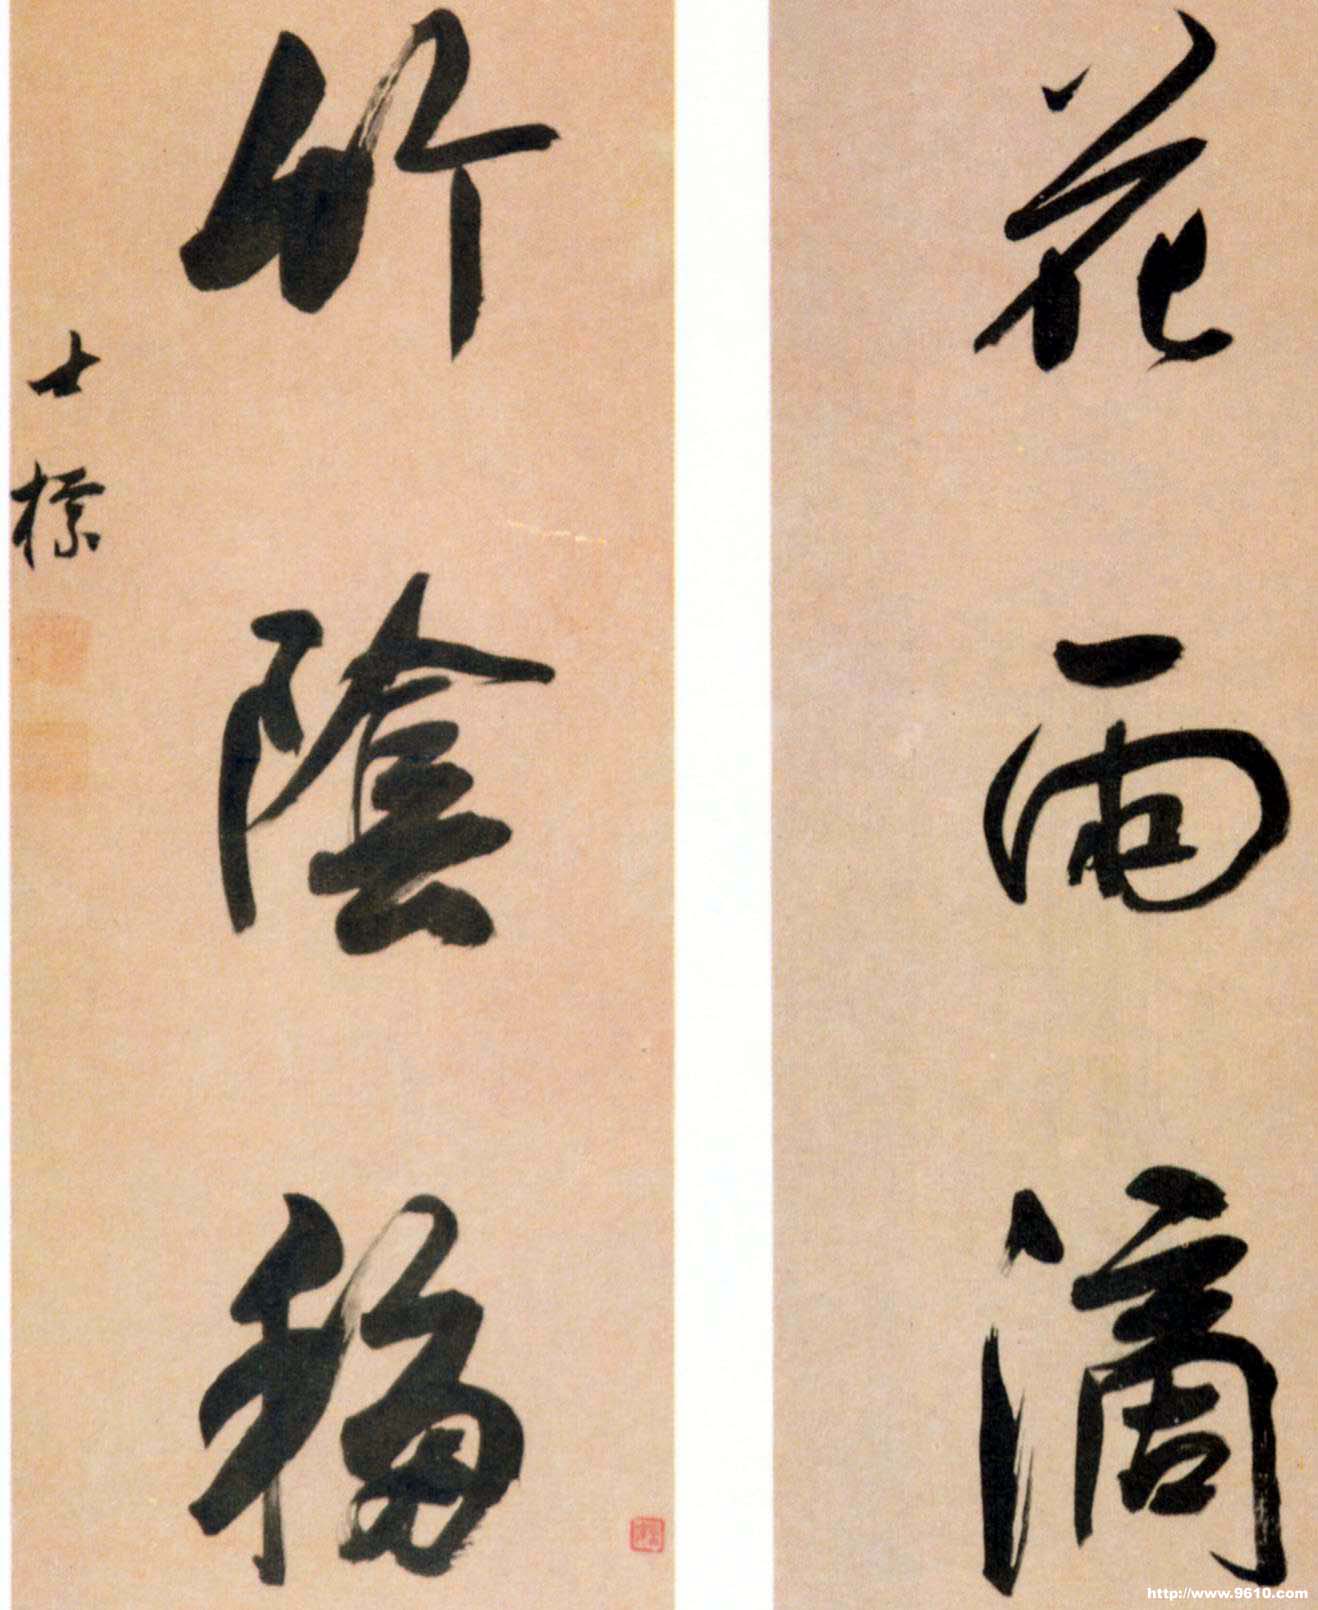 花雨滴
竹陰移
士標
http://www.9610.com